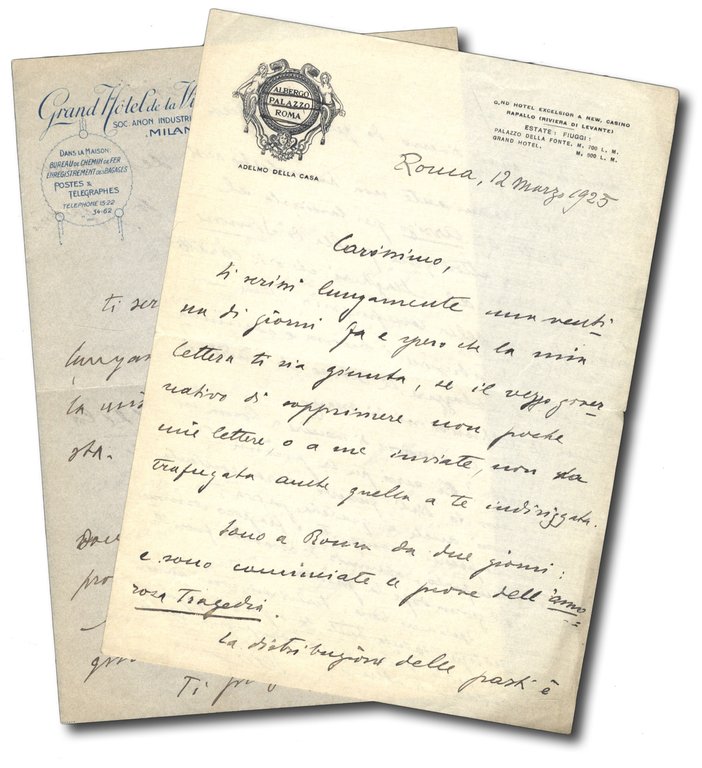 Grand Hôtel de la Vi
SOC. ANON. INDUSTRI
MILAN
DANS LA MAISON:
BUREAU DE CHEMIN DE FER
ENREGISTREMENT DES BAGAGES
POSTES &
TÉLÉGRAPHES
TELEPHONE 13-22
34-62
ti scr
lungam
la mis
sta.
pro
Ti
ALBERGO
PALAZZO
ROMA
ADELMO DELLA CASA
G.ND HOTEL EXCELSIOR & NEW. CASINO
RAPALLO (RIVIERA DI LEVANTE)
ESTATE: FIUGGI:
PALAZZO DELLA FONTE. M. 700 L. M.
GRAND HOTEL. M. 600 L. M.
Roma, 12 Marzo 1925
Carissimo,
ti scrissi lungamente una venti
na di giorni fa e spero che la mia
lettera ti sia giunta, se il vezzo gover
nativo di sopprimere non poche
mie lettere, o a me inviate, non ha
trafugata anche quella a te indirizzata.
Sono a Roma da due giorni:
e sono cominciate le prove dell'amo=
rosa Tragedia.
La distribuzione delle parti è